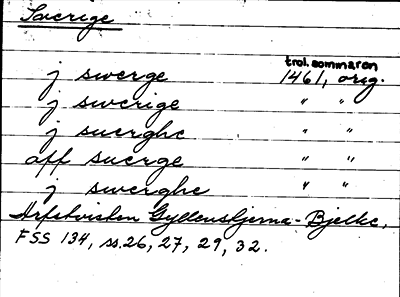 Sverige
trol. sommaren
j swerge 1461, orig.
j swerige " "
j suerghe " "
aff suerge " "
j swerghe " "
Arfstvisten Gyllenstjerna - Bjelke,
FSS 134, ss. 26, 27, 29, 32.